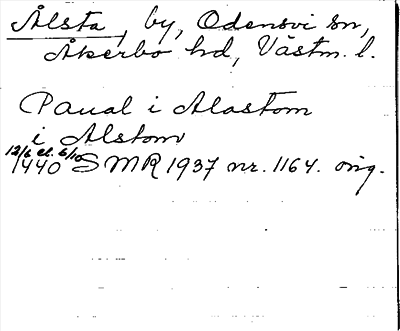 Ålsta, by, Odensvi sn,
Åkerbo hd, Västm. l.
Paual i Alastom
i Alstom
12/6 el. 6/10
1440 SMR 1937 nr. 1164. orig.